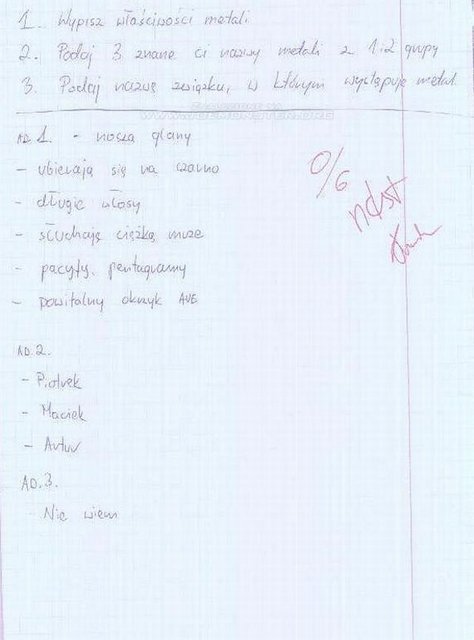 1. Wypisz właściwości metali
2. Podaj 3 znane ci nazwy metali z 1 i 2 grupy
3. Podaj nazwę związku, w którym występuje metal
WWW.JOEMONSTER.ORG
AD. 1. - noszą glany
- ubierają się na czarno
- długie włosy
- słuchają ciężką muze
- pacyfy, pentagramy
- powitalny okrzyk AVE
0/6
ndst
AD. 2.
- Piotrek
- Maciek
- Artur
AD. 3.
- Nie wiem